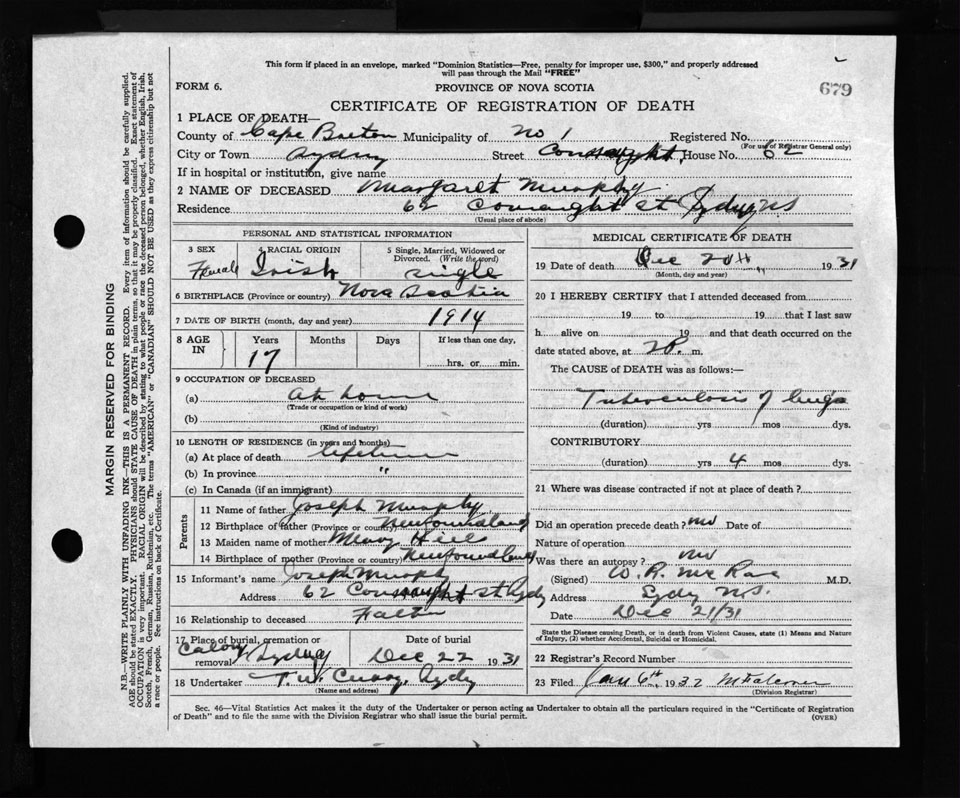 This form if placed in an envelope, marked "Dominion Statistics—Free, penalty for improper use, $300," and properly addressed
will pass through the Mail "FREE"
679
FORM 6.
PROVINCE OF NOVA SCOTIA
CERTIFICATE OF REGISTRATION OF DEATH
1 PLACE OF DEATH—
County of Cape Breton Municipality of No 1 Registered No.
(For use of Registrar General only)
City or Town Sydney Street Connaught House No. 62
If in hospital or institution, give name
2 NAME OF DECEASED Margaret Murphy
Residence 62 Connaught St Sydney NS
(Usual place of abode)
PERSONAL AND STATISTICAL INFORMATION
3 SEX 4 RACIAL ORIGIN 5 Single, Married, Widowed or
Divorced. (Write the word)
Female Irish single
6 BIRTHPLACE (Province or country) Nova Scotia
7 DATE OF BIRTH (month, day and year) 1914
8 AGE IN Years Months Days If less than one day,
17 hrs. or min.
9 OCCUPATION OF DECEASED
(a) At home
(Trade or occupation or kind of work)
(b)
(Kind of industry)
10 LENGTH OF RESIDENCE (in years and months)
(a) At place of death lifetime
(b) In province "
(c) In Canada (if an immigrant)
Parents
11 Name of father Joseph Murphy
12 Birthplace of father (Province or country) Newfoundland
13 Maiden name of mother Mary
14 Birthplace of mother (Province or country) Newfoundland
15 Informant's name Joseph Murphy
Address 62 Connaught St Sydy
16 Relationship to deceased Father
17 Place of burial, cremation or removal Sydney
Date of burial Dec 22 1931
18 Undertaker T. W. Curry, Sydy
(Name and address)
MEDICAL CERTIFICATE OF DEATH
19 Date of death Dec 20th 1931
(Month, day and year)
20 I HEREBY CERTIFY that I attended deceased from
19 to 19 that I last saw
h alive on 19 and that death occurred on
the date stated above, at m.
The CAUSE of DEATH was as follows:—
Tuberculosis of lungs
(duration) yrs mos dys.
CONTRIBUTORY
(duration) yrs 4 mos dys.
21 Where was disease contracted if not at place of death?
Did an operation precede death? no Date of
Nature of operation
Was there an autopsy? no
(Signed) W. R. McRae M.D.
Address Sydy N.S.
Date Dec 21/31
State the Disease causing Death, or in death from Violent Causes, state (1) Means and Nature
of Injury, (2) whether Accidental, Suicidal or Homicidal.
22 Registrar's Record Number
23 Filed Jan 6th, 1932
(Division Registrar)
Sec. 46—Vital Statistics Act makes it the duty of the Undertaker or person acting as Undertaker to obtain all the particulars required in the "Certificate of Registration
of Death" and to file the same with the Division Registrar who shall issue the burial permit. (OVER)
MARGIN RESERVED FOR BINDING
N.B.—WRITE PLAINLY WITH UNFADING INK—THIS IS A PERMANENT RECORD. Every item of information should be carefully supplied.
AGE should be stated EXACTLY. PHYSICIANS should STATE CAUSE OF DEATH in plain terms, so that it may be properly classified. Exact statement of
OCCUPATION is very important. RACIAL ORIGIN will be described by stating to what people or race the deceased person belonged, whether English, Irish,
Scotch, French, German, Russian, Ruthenian, etc. The terms "AMERICAN" or "CANADIAN" SHOULD NOT BE USED as they express citizenship but not
a race or people. See instructions on back of Certificate.